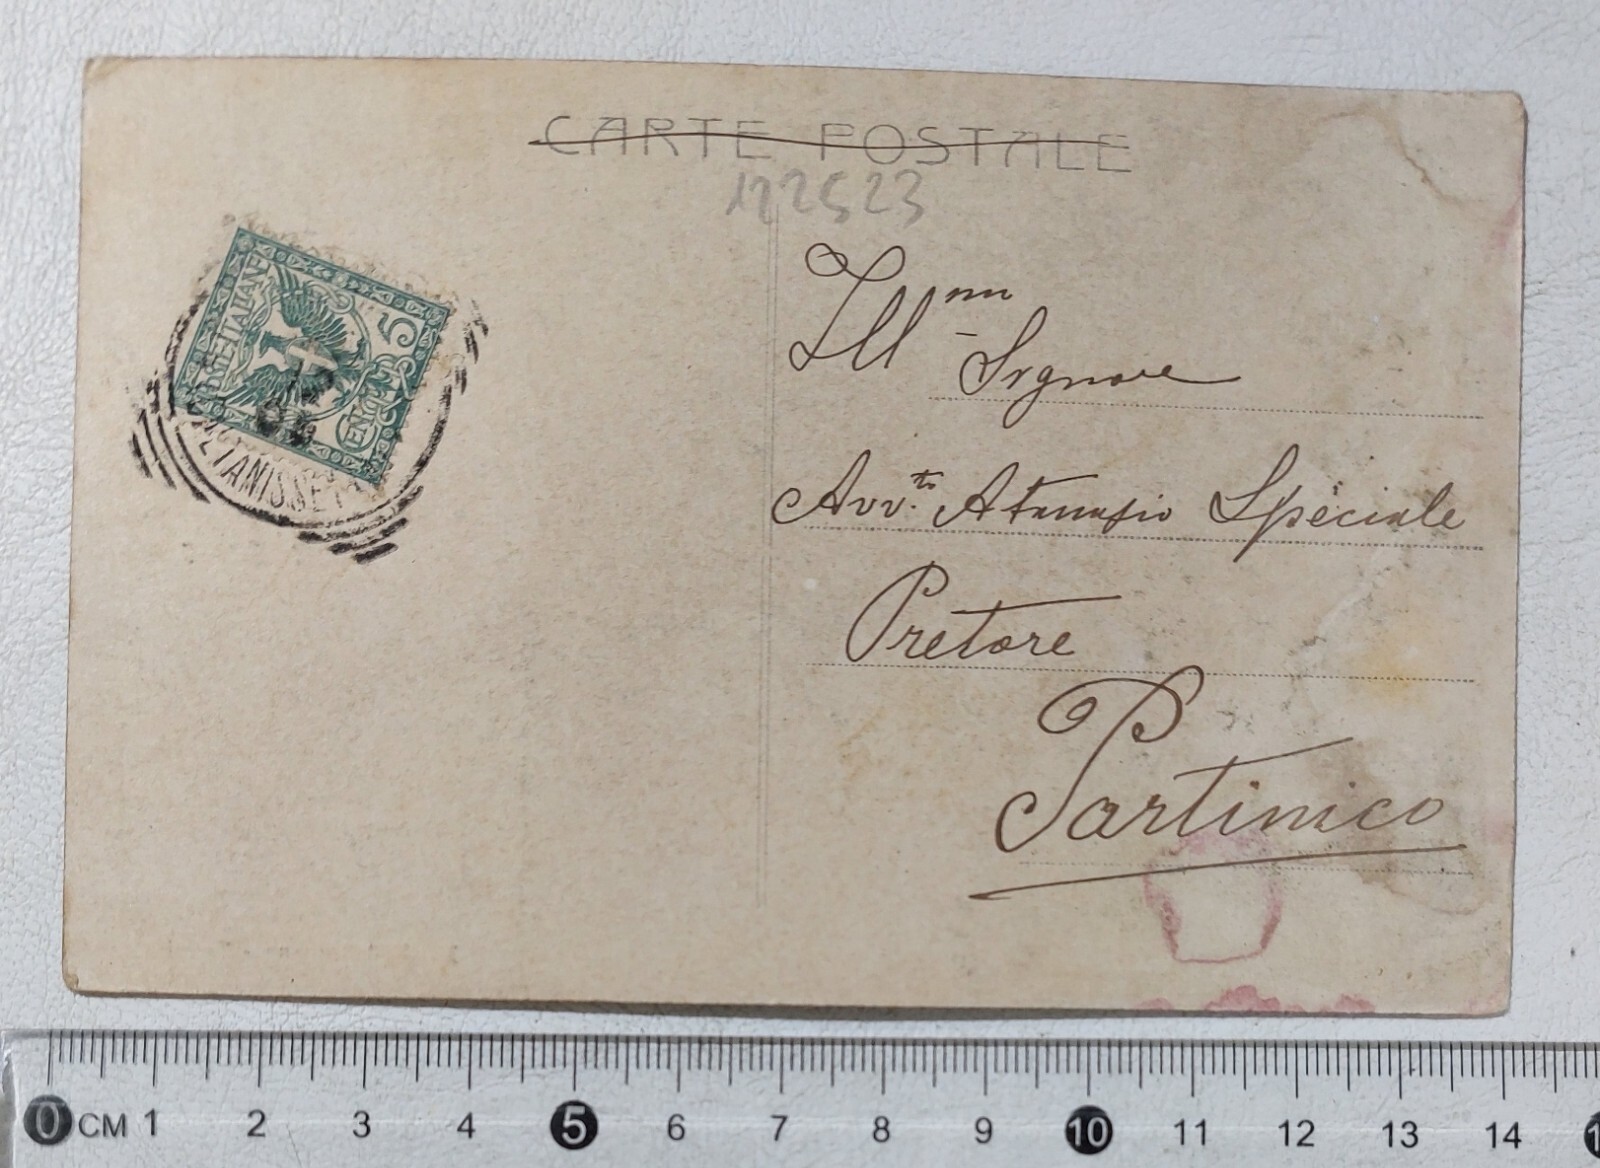 CARTE POSTALE
122523
POSTE ITALIANE
CENT. 5
CALTANISSETTA
Ill.mo
Signore
Avv.to Atanasio Speciale
Pretore
Partinico
0 CM 1 2 3 4 5 6 7 8 9 10 11 12 13 14